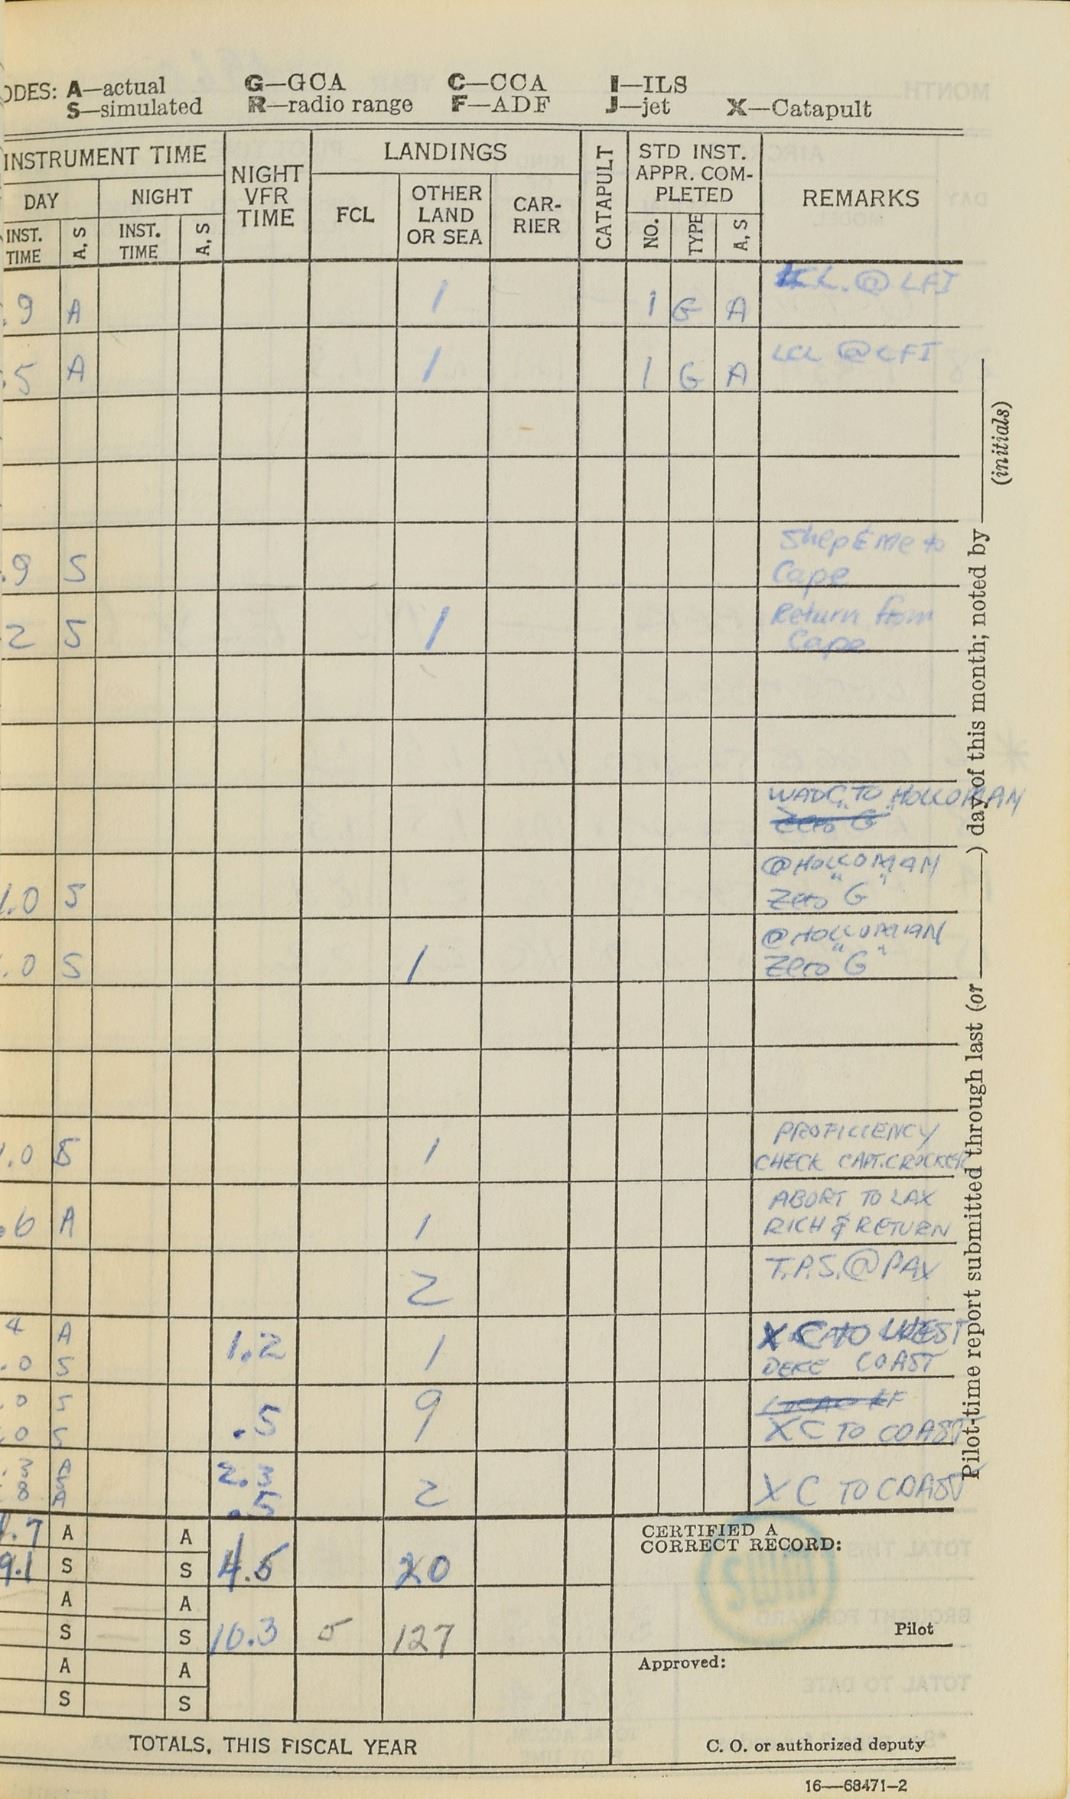 ODES: A—actual G—GCA C—CCA I—ILS
S—simulated R—radio range F—ADF J—jet X—Catapult
INSTRUMENT TIME NIGHT VFR TIME LANDINGS CATAPULT STD INST. APPR. COMPLETED REMARKS
DAY NIGHT FCL OTHER LAND OR SEA CARRIER NO. TYPE A, S
INST. TIME A, S INST. TIME A, S
.9 A 1 1 G A LCL. @ LFI
.5 A 1 1 G A LCL @ LFI
.9 S Shep & Me to
Cape
2 S 1 Return from
Cape
WADC TO HOLLOMAN
Zero "G"
1.0 S @ HOLLOMAN
Zero "G"
.0 S 1 @ HOLLOMAN
Zero "G"
1.0 S 1 PROFICIENCY
CHECK CAPT. CROCKER
.6 A 1 ABORT TO LAX
RICH & RETURN
2 T.P.S. @ PAX
4 A 1.2 1 X C TO WEST
.0 S DEKE COAST
.0 S .5 9
.0 S XC TO COAST
.3 A 2.3 2 XC TO COAST
8 A .5
1.7 A A CERTIFIED A
CORRECT RECORD:
9.1 S S 4.5 20
A A
S S 10.3 5 127 Pilot
A A Approved:
S S
TOTALS, THIS FISCAL YEAR C. O. or authorized deputy
16—68471-2
Pilot-time report submitted through last (or ) day of this month; noted by
(initials)